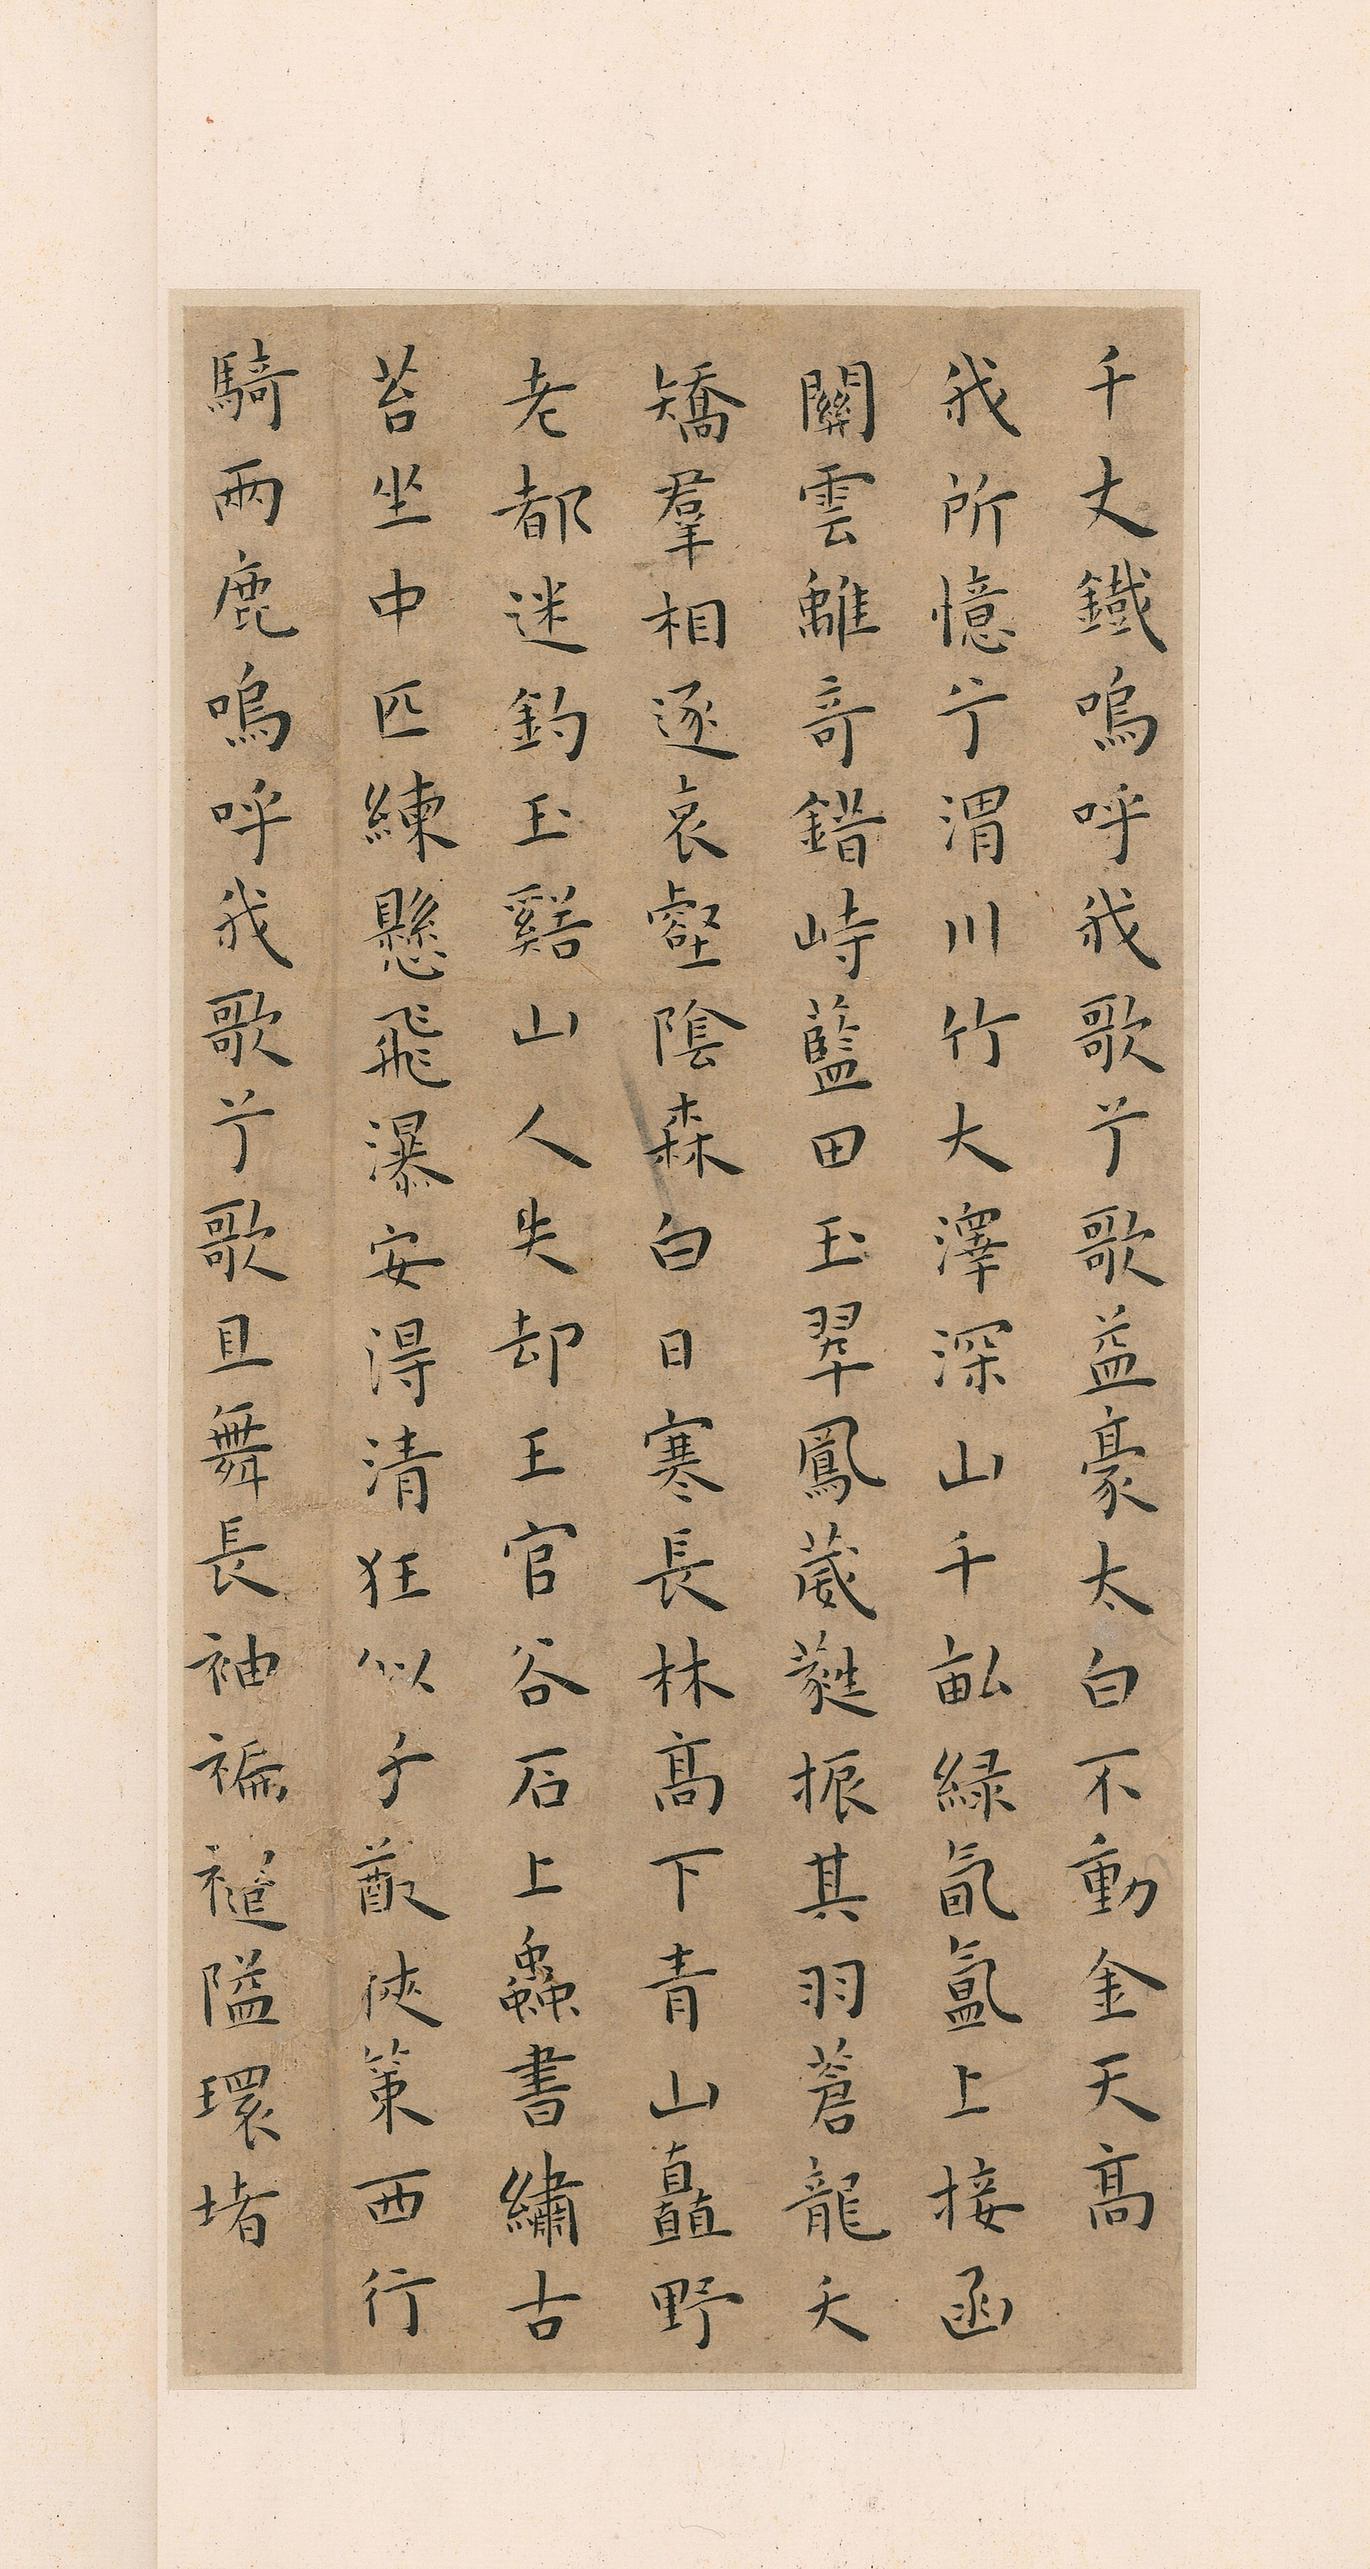 千丈鐵嗚呼我歌兮歌益豪太白不動金天高
我所憶兮渭川竹大澤深山千畝綠氤氳上接函
關雲離奇錯峙藍田玉翠鳳葳蕤振其羽蒼龍夭
矯羣相逐哀壑陰森白日寒長林高下青山矗野
老都迷釣玉谿山人失却王官谷石上蟲書繡古
苔坐中匹練懸飛瀑安得清狂似子猷俠策西行
騎兩鹿嗚呼我歌兮歌且舞長袖褊褼隘環堵